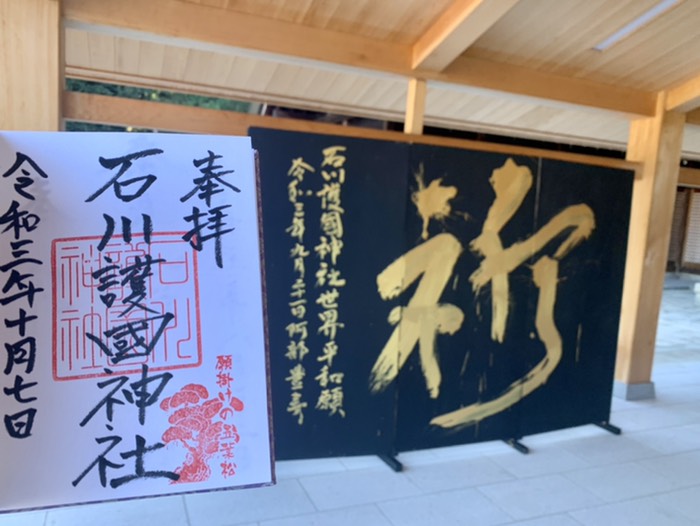 奉拝
石川護國神社
令和三年十月七日
石川
神社
願掛けの三葉松
祈
石川護國神社世界平和願
令和三年九月二十一日阿部豊寿